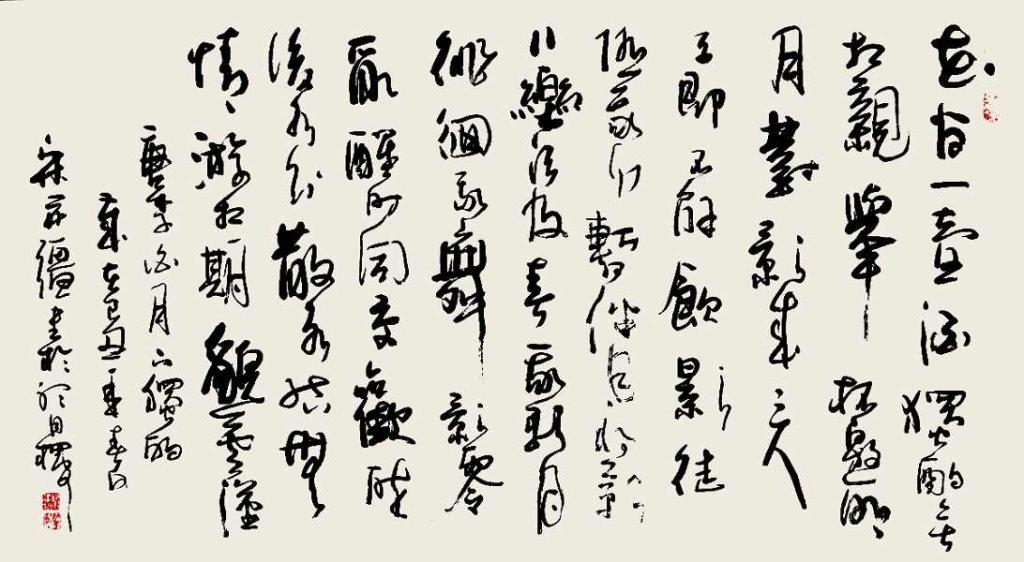 花間一壺酒獨酌無
相親舉杯邀明
月對影成三人
月既不解飲影徒
隨我身暫伴月將影
行樂須及春我歌月
徘徊我舞影零
亂醒時同交歡醉
後各分散永結無
情遊相期邈雲漢
唐李白月下獨酌
歲在己丑年春日
疆書於